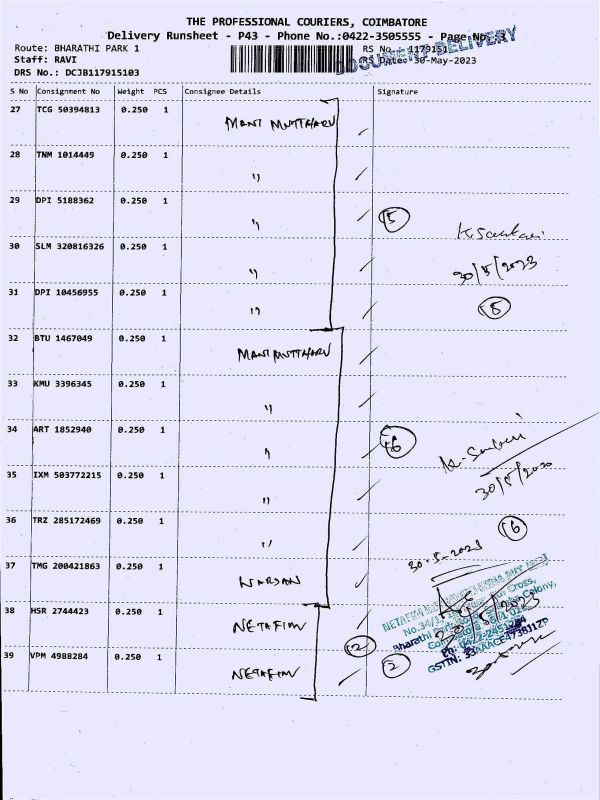 THE PROFESSIONAL COURIERS, COIMBATORE
Delivery Runsheet - P43 - Phone No.:0422-3505555 - Page No
Route: BHARATHI PARK 1
RS No.: 1179151
Staff: RAVI
RS Date: 30-May-2023
DOCUMENT DELIVERY
DRS No.: DCJB117915103
S No Consignment No Weight PCS Consignee Details Signature
27 TCG 50394813 0.250 1 MANI MUTTHARU
28 TNM 1014449 0.250 1 "
29 DPI 5188362 0.250 1 " 5
30 SLM 320816326 0.250 1 "
30/5/2023
31 DPI 10456955 0.250 1 "
5
32 BTU 1467049 0.250 1 MANI MUTTHARU
33 KMU 3396345 0.250 1 "
34 ART 1852940 0.250 1 " 6
35 IXM 503772215 0.250 1 "
36 TRZ 285172469 0.250 1 "
6
30-5-2023
37 TMG 200421863 0.250 1
38 HSR 2744423 0.250 1 NETAFIM
2
39 VPM 4988284 0.250 1 NETAFIM 2
30/5/2023